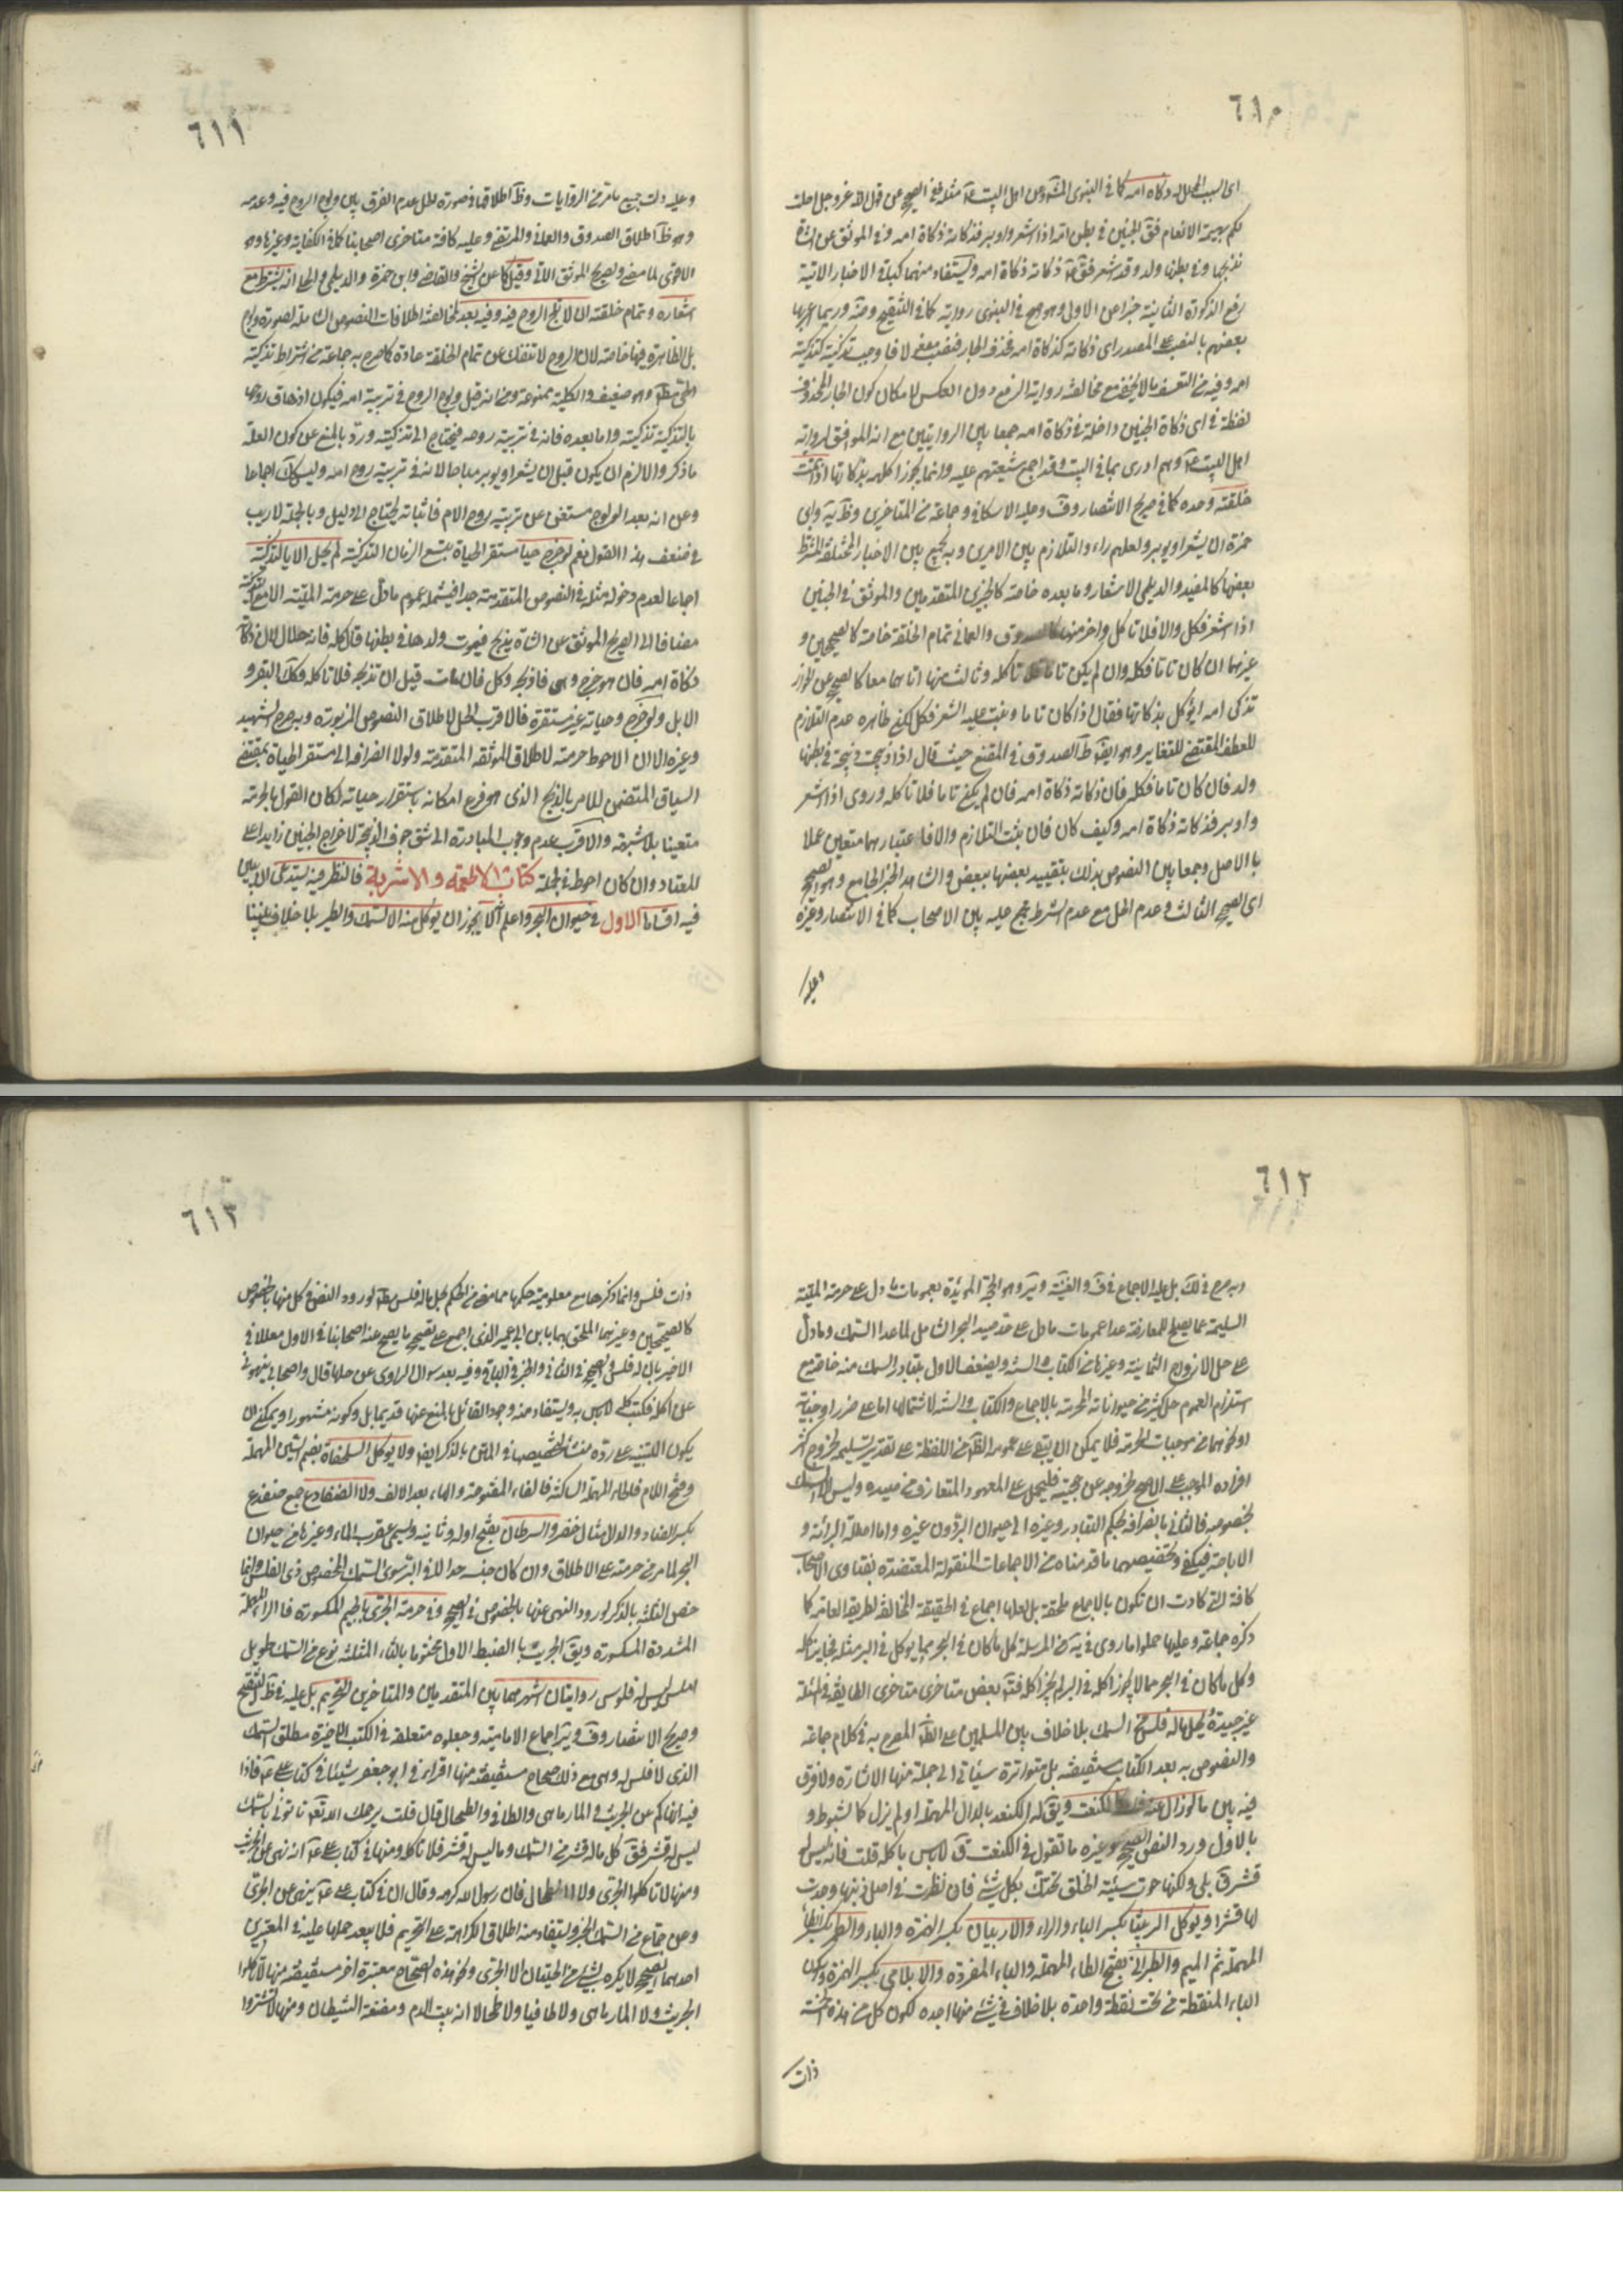 ٦١٠
اى السبب لحلاله ذكاة امه كما فى النبوى المشهور عن اهل البيت ع مثله ففى الصحيح عن قول الله عز وجل احلت
لكم بهيمة الانعام فق الجنين فى بطن امه اذا اشعر واوبر فذكاته ذكاة امه وفى الموثق عن الشاة
نذبحها وفى بطنها ولد وقد شعر فق ع ذكاته ذكاة امه ويستفاد منهما كباقى الاخبار الاتية
رفع الذكوة الثانية خبرا عن الاولى وهو صح فى النبوى رواية كما فى التنقيح وضه وربما اعربها
بعضهم بالنصب على المصدر اى ذكاته كذكاة امه فحذف الجار فنصب مفعولا فاوجب تذكيته كتذكية
امه وفيه من التعسف ما لا يخفى مع مخالفته رواية الرفع دون العكس لامكان كون الجار المحذوف
لفظة فى اى ذكاة الجنين داخلة فى ذكاة امه جمعا بين الروايتين مع انه الموافق لرواية
اهل البيت ع وهم ادرى بما فى البيت وقد اجمع شيعتهم عليه وانما يجوز اكله بذكاتها اذا تمت
خلقته وحده كما فى صريح الانتصار وف وعليه الاسكافى وجماعة من المتاخرين وظ ية وابى
حمزة ان يشعر او يوبر ولعلهم راوا التلازم بين الامرين وبه يجمع بين الاخبار المختلفة المشترط
بعضها كالمفيد والديلمى الاشعار وما بعده خاصة كالخبرين المتقدمين والموثق فى الجنين
اذا اشعر فكل والا فلا تاكل واخر منها كالصدوق والعمانى تمام الخلقة خاصة كالصحيحين و
غيرهما ان كان تاما فكله وان لم يكن تاما فلا تاكله وثالث منها اتاهما معا كالصحيح عن الحوار
تذكى امه ايؤكل بذكاتها فقال اذا كان تاما ونبت عليه الشعر فكل لكن ظاهره عدم التلازم
للعطف المقتضى للتغاير وهو ايضا ظ الصدوق فى المقنع حيث قال اذا ذبحت ذبيحة فى بطنها
ولد فان كان تاما فكله فان ذكاته ذكاة امه فان لم يكن تاما فلا تاكله وروى اذا اشعر
واوبر فذكاته ذكاة امه وكيف كان فان ثبت التلازم والا فاعتبارهما متعين عملا
بالاصل وجمعا بين النصوص بذلك بتقييد بعضها ببعض والشاهد الخبر الجامع وهو الصحيح
اى الصحيح الثالث وعدم الحل مع عدم الشرط مجمع عليه بين الاصحاب كما فى الانتصار وغيره
وعليه
٦١١
وعليه دلت جميع ما مر من الروايات وظ اطلاقها وصورة الحل عدم الفرق بين ولوج الروح فيه وعدمه
وهو ظ اطلاق الصدوق والعمانى والمرتضى وعليه كافة متاخرى اصحابنا كما فى الكفاية وغيرها وهو
الاقوى لما مضى ولصريح الموثق الاتى وقيل كما عن الشيخ والقاضى وابن حمزة والديلمى والحلى انه يشترط مع
اشعاره وتمام خلقته ان لا تلج الروح فيه وفيه بعد لمخالفته اطلاقات النصوص الشاملة لصورة ولوج
بل الظاهرة فيها خاصة لان الروح لا تنفك عن تمام الخلقة عادة كما صرح به جماعة من اشتراط تذكية
الحى مطلقا وهو ضعيف والكلية ممنوعة ومن انه قبل ولوج الروح فى تربية امه فيكون اذهاق روحها
بالتذكية تذكيته واما بعده فانه فى تربية روحه فيحتاج الى تذكيته ورد بالمنع عن كون العلة
ما ذكر والا لزم ان يكون قبل ان يشعر او يوبر مباحا لانه فى تربية روح امه وليس كك اجماعا
وعن انه بعد الولوج مستغنى عن تربية روح الام فاثباته يحتاج الى دليل وبالجملة لا ريب
فى ضعف هذا القول نعم لو خرج حيا مستقر الحياة يتسع الزمان التذكية لم يحل الا بالتذكية
اجماعا لعدم دخوله مثله فى النصوص المتقدمة جدا فيشمله عموم ما دل على حرمة الميتة الا مع التذكية
مضافا الى الصريح الموثق عن الشاة يذبح فيموت ولدها فى بطنها قال كله فانه حلال لان ذكاته
ذكاة امه فان هو خرج وهو حى فاذبحه وكل فان مات قبل ان تذبحه فلا تاكله وكك البقر و
الابل ولو خرج وحياته غير مستقرة فالاقرب الحل لاطلاق النصوص المزبورة وبه صرح الشهيد
وغيره الا ان الاحوط حرمته لاطلاق الموثقة المتقدمة ولولا انصرافه الى استقر الحياة بمقتضى
السياق المتضمن للامر بالذبح الذى هو فرع امكانه باستقرار حياته لكان القول بالحرمة
متعينا بلا شبهة والاقرب عدم وجوب المبادرة الى شق جوف الذبيحة لاخراج الجنين زايدا على
المعتاد وان كان احوط فى الجملة كتاب الاطعمة والاشربة فالنظر فيه يستدعى الا بيان
فيه اقساما الاول فى حيوان البحر واعلم انه لا يجوز ان يؤكل منه الا السمك والطير بلا خلاف بيننا
٦١٢
وبه صرح فى لك بل عليه الاجماع فى ف والغنية وير وهو الحجة المؤيدة بعمومات ما دل على حرمة الميتة
السليمة عما يصلح للمعارضة عدا عمومات ما دل على حل صيد البحر الشامل لما عدا السمك وما دل
على حل الازواج الثمانية وغيرها من الكتاب والسنة ويضعف الاول بتبادر السمك منه خاصة مع
استلزام العموم حل كثير من حيواناته المحرمة بالاجماع والكتاب والسنة لاشتمالها اما على ضرر او خباثة
او نحوهما من موجبات الحرمة فلا يمكن ان يبقى على عمومه الظ من اللفظة على تقدير تسليمه لخروج اكثر
افراده الموجب على الاصح لخروجه عن حجيته فليحمل على المعهود المتعارف من صيده وليس الا السمك
لخصوصه فالثانى بانصرافه بحكم التبادر وغيره الى حيوان البر دون غيره واما اصالة البرائة و
الاباحة فيكفى وتخصيصهما ما قدمناه من الاجماعات المنقولة المعتضدة بفتاوى الاصحاب
كافة التى كادت ان تكون بالاجماع ملحقة بل لعلها اجماع فى الحقيقة المخالفة لطريقة العامة كما
ذكره جماعة وعليها حملوا ما روى فى يه من المرسلة كل ما كان فى البحر مما يؤكل فى البر مثله فجايز اكله
وكل ما كان فى البحر مما لا يجوز اكله فى البر لم يجز اكله فتوقف بعض متاخرى متاخرى الطايفة فى المسئلة
غير جيدة يحل ما له فلس من السمك بلا خلاف بين المسلمين على الظ المصرح به فى كلام جماعة
والنصوص به بعد الكتاب مستفيضة بل متواترة سيأتى الى جملة منها الاشارة ولا فرق
فيه بين ما لو زال عنه فلسه كالكنعت ويق له الكنعد بالدال المهملة او لم يزل كالشبوط و
بالاول ورد النص الصحيح وغيره ما تقول فى الكنعت ق لا باس باكله قلت فانه ليس له
قشر ق بلى ولكنها حوت سيئة الخلق تحتك بكل شئ فان نظرت فى اصل ذنبها وجدت
لها قشرا ويؤكل الربيثا بكسر الباء والراء والاربيان بكسر الهمزة والباء والطمر بكسر الطاء
المهملة ثم الميم والطبرانى بفتح الطاء المهملة والباء المفردة والابلامى بكسر الهمزة وسكون
الباء المنقطة من تحت نقطة واحدة بلا خلاف فى شئ منها اجده لكون كل من هذه الخمسة
ذات
٦١٣
ذات فلس وانما ذكرها مع معلومية حكمها مما مضى من الحكم بحل ماله فلس مطلقا لورود النص فى كل منها بالخصوص
كالصحيحين وغيرهما الملحق بهما بابن ابى عمير الذى اجمع على تصحيح ما يصح عنه اصحابنا فى الاول معللا فى
الاخير بان له فلس والصحيح فى الثانى والخبر فى الباقى وفيه بعد سؤال الراوى عن حلها قال واصحابى ينهونى
عن اكله فكتب كله لا باس به ويستفاد منه وجود القائل بالمنع عنها قديما بل وكونه مشهورا ويمكن ان
يكون التنبيه على رده منشا لتخصيصها فى المتن بالذكر ايضا ولا يؤكل السلحفاة بضم السين المهملة
وفتح اللام فالحاء المهملة الساكنة فالفاء المفتوحة والهاء بعد الالف ولا الضفادع جمع ضفدع
بكسر الضاد والدال مثال خنصر والسرطان بفتح اوله وثانيه ويسمى عقرب الماء وغيرها من حيوان
البحر لما مر من حرمته على الاطلاق وان كان جنسه حلالا فى البر سوى السمك المخصوص ذى الفلس وانما
خص الثلثة بالذكر لورود النهى عنها بالخصوص فى الصحيح وفى حرمة الجرى بالجيم المكسورة فالراء المهملة
المشددة المكسورة ويق الجريث بالضبط الاول مختوما بالثاء المثلثة نوع من السمك طويل
املس ليس له فلوس روايتان اشهرهما بين المتقدمين والمتاخرين التحريم بل عليه فى ظ التنقيح
وصريح الانتصار وف وير اجماع الامامية وجعلوه متعلقه فى الكتب الاخيرة مطلق السمك
الذى لا فلس له وهى مع ذلك صحاح مستفيضة منها اقرانى ابو جعفر شيئا فى كتاب على ع فاذا
فيه انهاكم عن الجريث والمارماهى والطافى والطحال قال قلت يرحمك الله تعالى انا نؤتى بالسمك
ليس له قشر فق كل ما له قشر من السمك وما ليس له قشر فلا تاكله ومنها فى كتاب على ع انه نهى عن الجريث
ومنها لا تاكلوا الجرى ولا الطحال فان رسول الله كرهه وقال ان فى كتاب على ع ينهى عن الجرى
وعن جماع من السمك الخبر ويستفاد منه اطلاق الكراهة على التحريم فلا يبعد حملها عليه فى المعتبرين
احدهما الصحيح لا يكره شئ من الحيتان الا الجرى ونحو هذه الصحاح معتبرة اخر مستفيضة منها لا تاكلوا
الجريث ولا المارماهى ولا طافيا ولا طحالا انه بيت الدم ومضغة الشيطان ومنها لا تشتروا